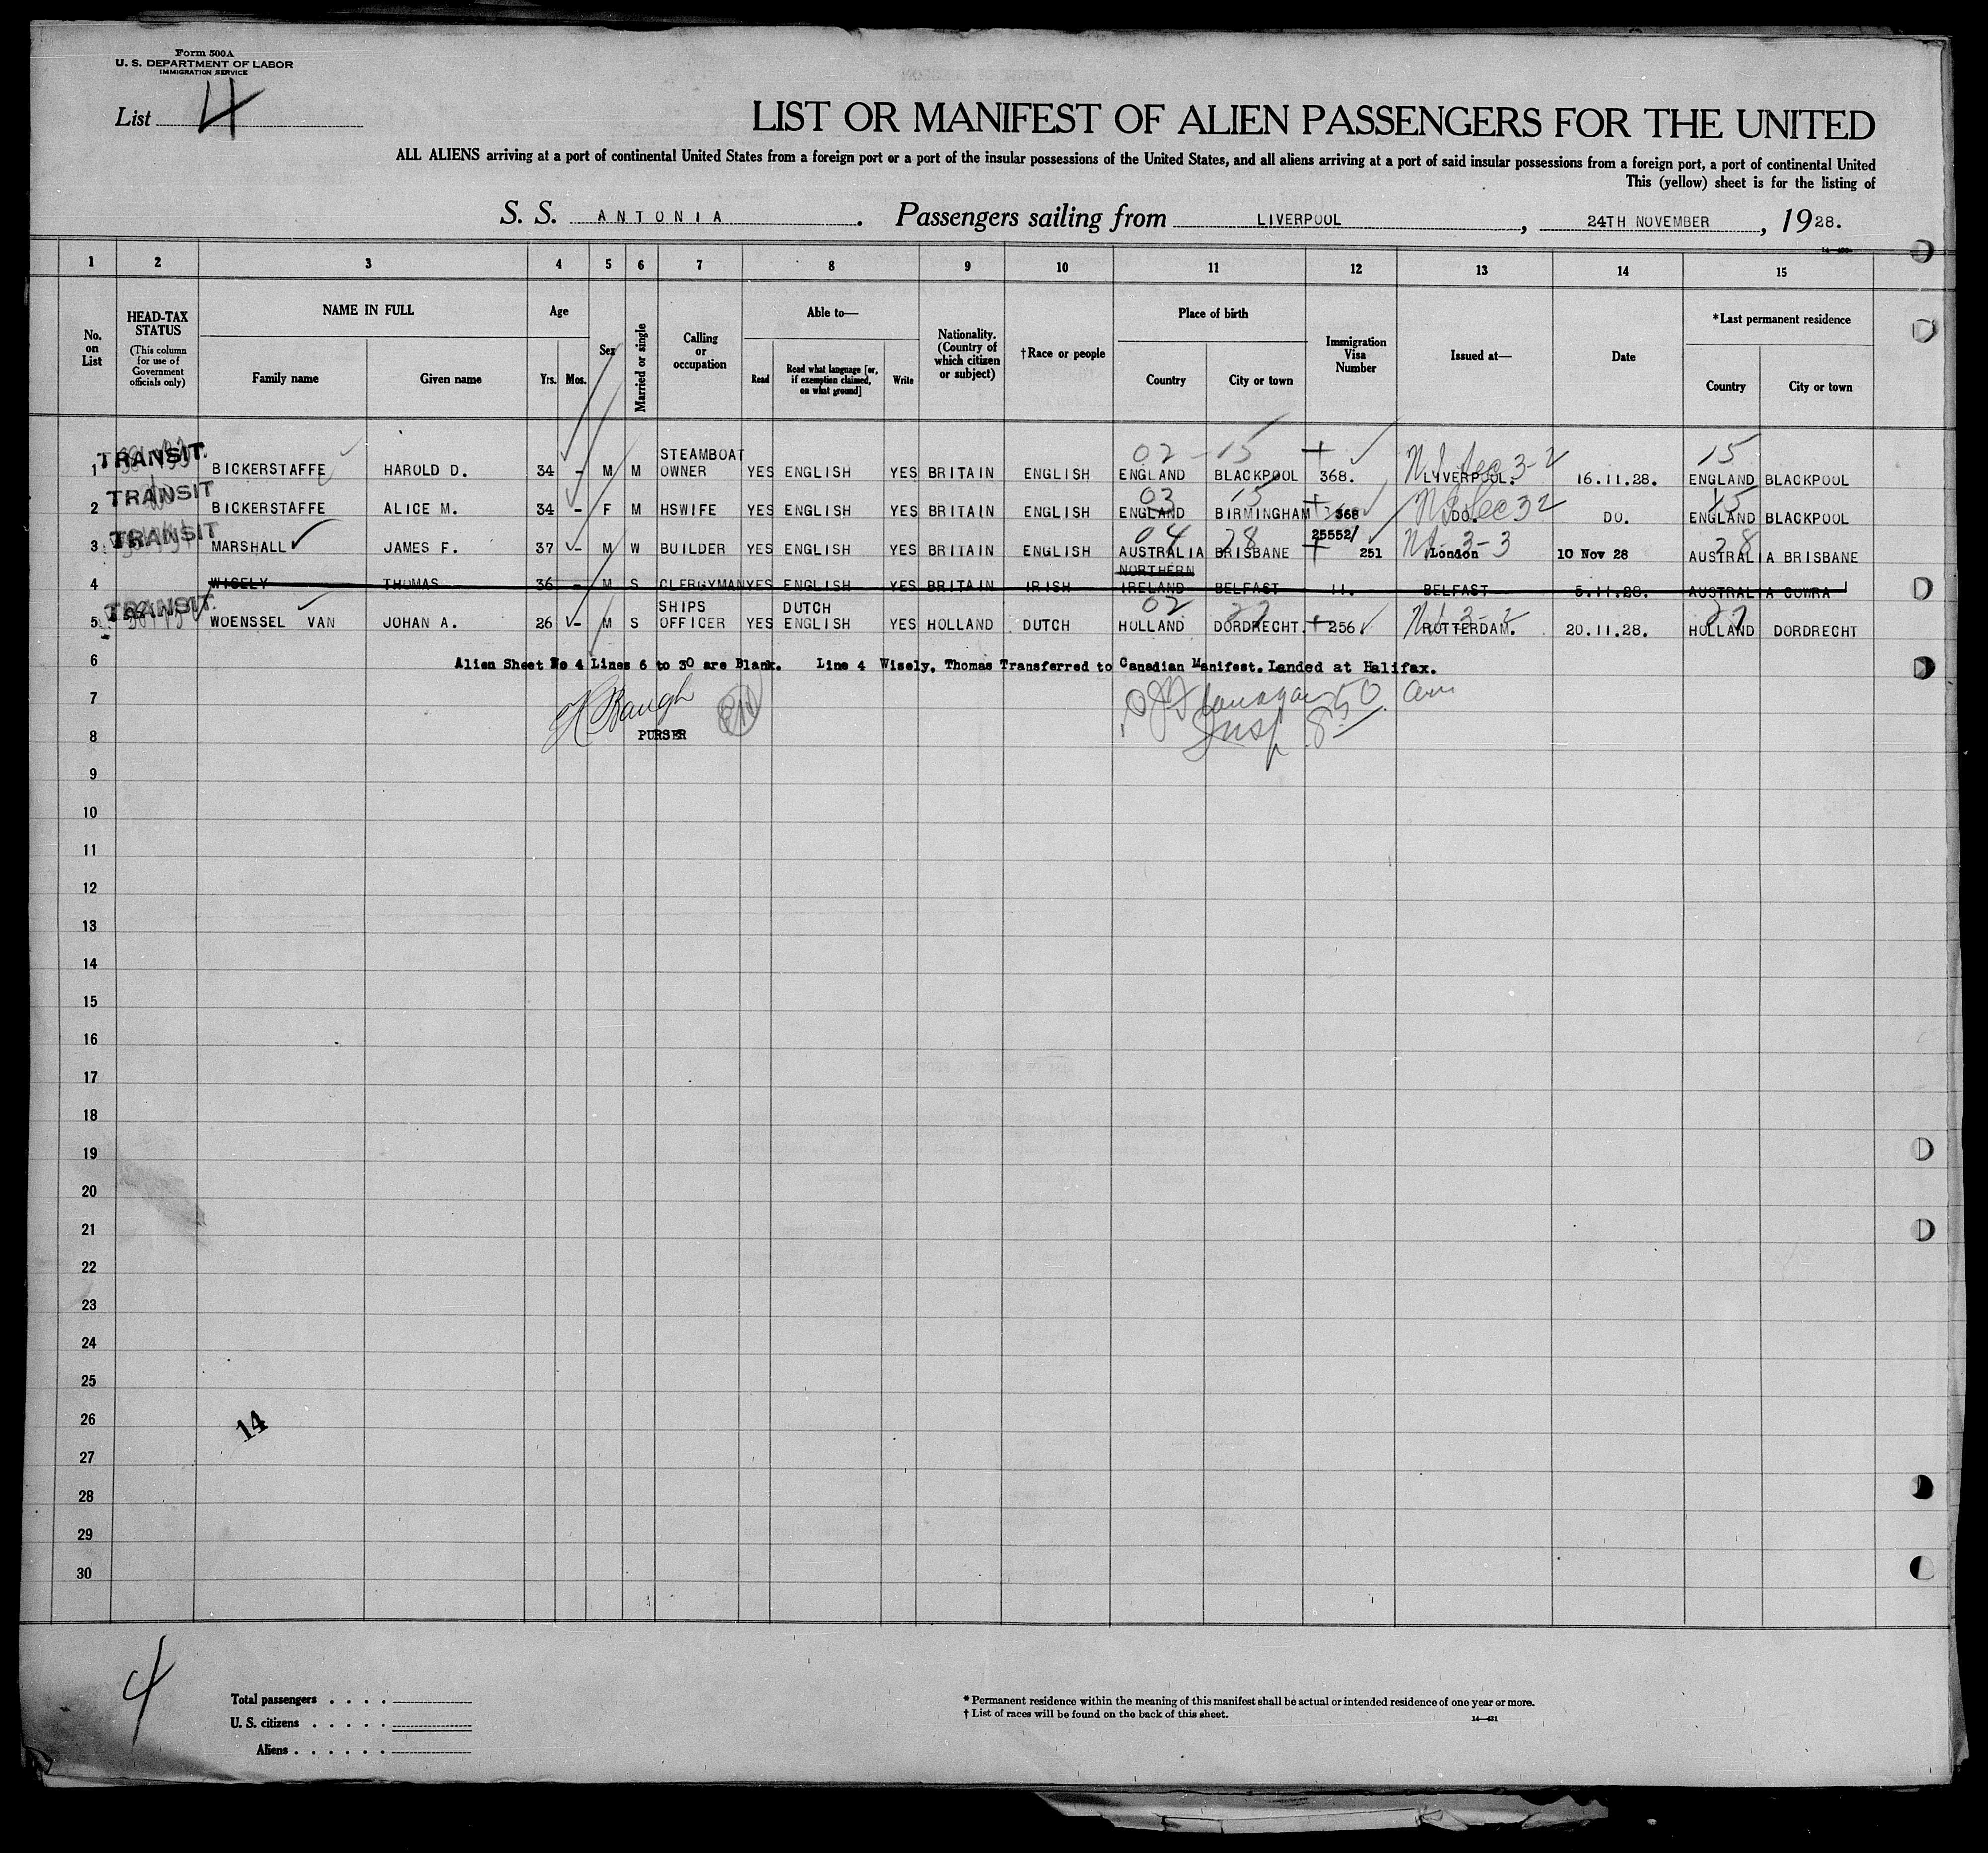 Form 500A
U. S. DEPARTMENT OF LABOR
IMMIGRATION SERVICE
List 4
LIST OR MANIFEST OF ALIEN PASSENGERS FOR THE UNITED
ALL ALIENS arriving at a port of continental United States from a foreign port or a port of the insular possessions of the United States, and all aliens arriving at a port of said insular possessions from a foreign port, a port of continental United
This (yellow) sheet is for the listing of
S. S. ANTONIA. Passengers sailing from LIVERPOOL, 24TH NOVEMBER, 1928.
1 2 3 4 5 6 7 8 9 10 11 12 13 14 15
No. on List
HEAD-TAX STATUS (This column for use of Government officials only)
NAME IN FULL
Family name Given name
Age
Yrs. Mos.
Sex
Married or single
Calling or occupation
Able to—
Read Read what language [or, if exemption claimed, on what ground] Write
Nationality. (Country of which citizen or subject)
† Race or people
Place of birth
Country City or town
Immigration Visa Number
Issued at—
Date
* Last permanent residence
Country City or town
02 - 15 15
1 TRANSIT. BICKERSTAFFE HAROLD D. 34 - M M STEAMBOAT OWNER YES ENGLISH YES BRITAIN ENGLISH ENGLAND BLACKPOOL 368. LIVERPOOL. 16.11.28. ENGLAND BLACKPOOL
03 15 15
2 TRANSIT BICKERSTAFFE ALICE M. 34 - F M HSWIFE YES ENGLISH YES BRITAIN ENGLISH ENGLAND BIRMINGHAM 368 DO. DO. ENGLAND BLACKPOOL
04 28 28
3 TRANSIT MARSHALL JAMES F. 37 - M W BUILDER YES ENGLISH YES BRITAIN ENGLISH AUSTRALIA BRISBANE 25552/ 251 London 10 Nov 28 AUSTRALIA BRISBANE
4 WISELY THOMAS 36 - M S CLERGYMAN YES ENGLISH YES BRITAIN IRISH NORTHERN IRELAND BELFAST 11. BELFAST 5.11.28. AUSTRALIA COWRA
02 27 27
5 TRANSIT. WOENSSEL VAN JOHAN A. 26 - M S SHIPS OFFICER YES DUTCH ENGLISH YES HOLLAND DUTCH HOLLAND DORDRECHT. 256. ROTTERDAM. 20.11.28. HOLLAND DORDRECHT
6 Alien Sheet No 4 Lines 6 to 30 are Blank. Line 4 Wisely, Thomas Transferred to Canadian Manifest. Landed at Halifax.
7
8 PURSER Insp 8 50 am
9
10
11
12
13
14
15
16
17
18
19
20
21
22
23
24
25
26 14
27
28
29
30
4
Total passengers . . . .
U. S. citizens . . . . .
Aliens . . . . . .
* Permanent residence within the meaning of this manifest shall be actual or intended residence of one year or more.
† List of races will be found on the back of this sheet.
14—431